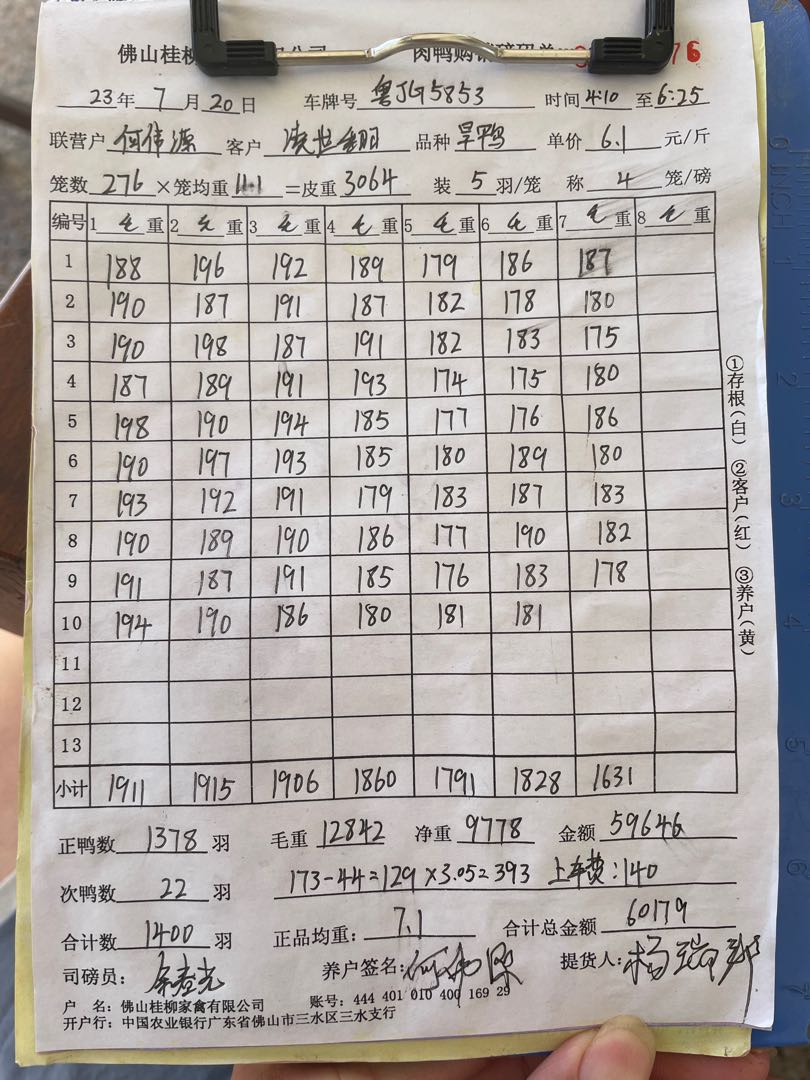 佛山桂柳 公司 肉鸭购 磅码单 76
23年 7月 20日 车牌号 粤JG5853 时间 4:10 至 6:25
联营户 何伟源 客户 品种 旱鸭 单价 6.1 元/斤
笼数 276 ×笼均重 11.1 =皮重 3064 装 5 羽/笼 称 4 笼/磅
编号 1 毛 重 2 毛 重 3 毛 重 4 毛 重 5 毛 重 6 毛 重 7 毛 重 8 毛 重
1 188 196 192 189 179 186 187
2 190 187 191 187 182 178 180
3 190 198 187 191 182 183 175
4 187 189 191 193 174 175 180
5 198 190 194 185 177 176 186
6 190 197 193 185 180 189 180
7 193 192 191 179 183 187 183
8 190 189 190 186 177 190 182
9 191 187 191 185 176 183 178
10 194 190 186 180 181 181
11
12
13
小计 1911 1915 1906 1860 1791 1828 1631
正鸭数 1378 羽 毛重 12842 净重 9778 金额 59646
次鸭数 22 羽 173-44=129×3.05=393 上车费:140
合计数 1400 羽 正品均重: 7.1 合计总金额 60179
司磅员: 养户签名: 提货人:
户 名: 佛山桂柳家禽有限公司 账号: 444 401 010 400 169 29
开户行: 中国农业银行广东省佛山市三水区三水支行
①存根(白) ②客户(红) ③养户(黄)
0 INCH 1 2 3 4 5 6 7